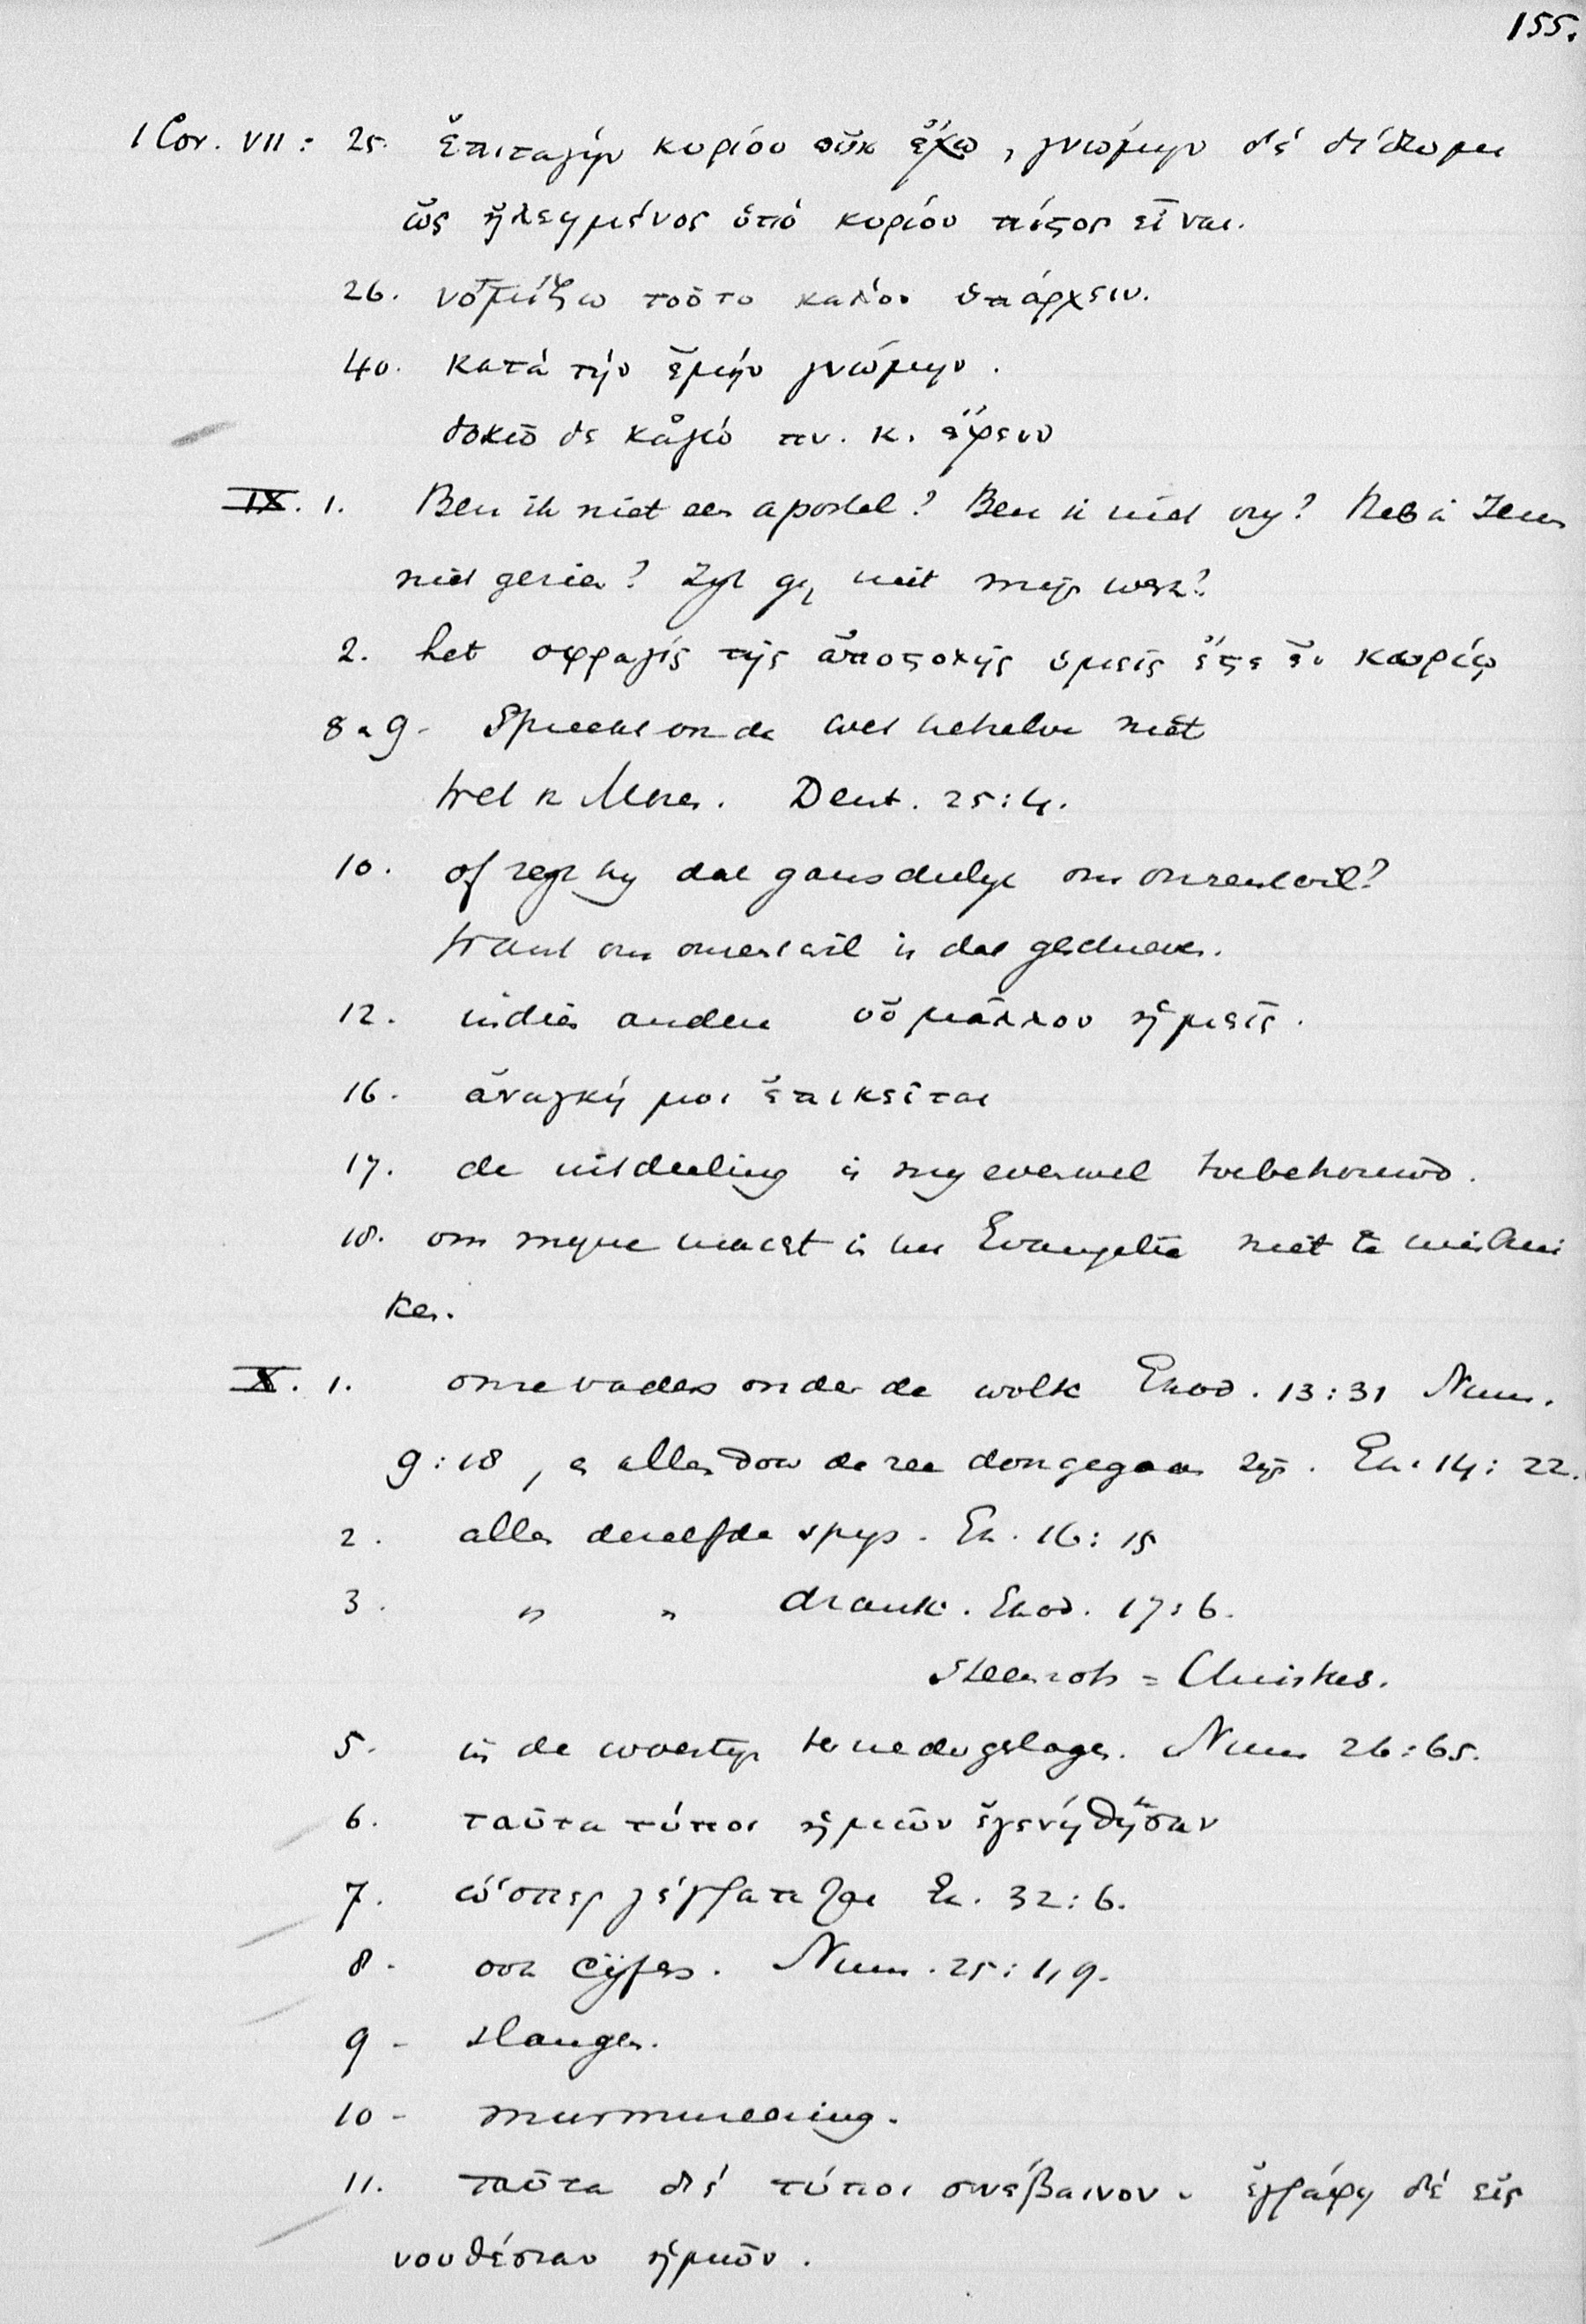 155.
1 Cor. VII: 25. ἐπιταγήν κυρίου οὐκ ἔχω, γνώμην δέ δίδωμι
ὡς ἠλεημένος ὑπό κυρίου πίςος εἶναι.
26. νομίζω τοῦτο καλον ὑπάρχειν.
40. κατά τήν ἐμήν γνώμην.
δοκῶ δε κἀγώ πν. κ. ἔχειν
IX. 1. Ben ik niet een apostel? Ben ik niet vry? Heb ik Jezus
niet gezien? Zyt gy niet myn werk?
2. het σφραγίς τῆς ἀποςολῆς ὑμεῖς ἔςε ἐν κυρίῳ
8 en 9. Spreekt ook de wet hetzelve niet
Wet v. Mozes. Deut. 25:4.
10. of zegt hy dat ganschelyk om onzentwil?
Want om onzentwil is dat geschreven.
12. indien anderen οὐ μᾶλλον ἡμεῖς.
16. ἀναγκή μοι ἐπικεῖται
17. de uitdeeling is my evenwel toebetrouwd.
18. om myne macht in het Evangelie niet te misbrui
ken.
X. 1. onze vaders onder de wolk Exod. 13:31 Num.
9:18, en allen door de zee doorgegaan zyn. Ex. 14:22.
2. allen dezelfde spys. Ex. 16:15
3. " " drank. Exod. 17:6.
Steenrots = Christus.
5. in de woestyn ter nedergeslagen. Num 26:65.
6. ταῦτα τύποι ἡμῶν ἐγενήθησαν
7. ὥσπερ γέγραπται Ex. 32:6.
8. ook cijfers. Num. 25:1,9.
9. slangen.
10. murmureering.
11. ταῦτα δέ τύποι συνέβαινον. ἐγράφη δέ εἰς
νουθέσιαν ἡμῶν.